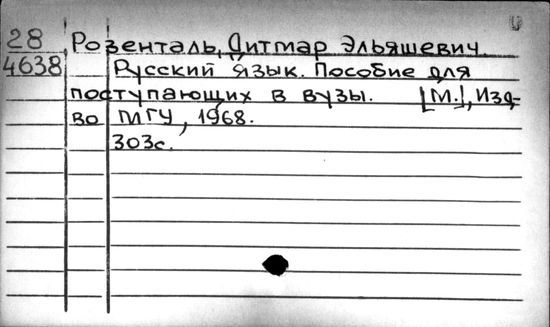 28 Розенталь, Дитмар Эльяшевич.
4638 Русский язык. Пособие для
поступающих в вузы. [М.], Изд-
во МГУ, 1968.
303с.